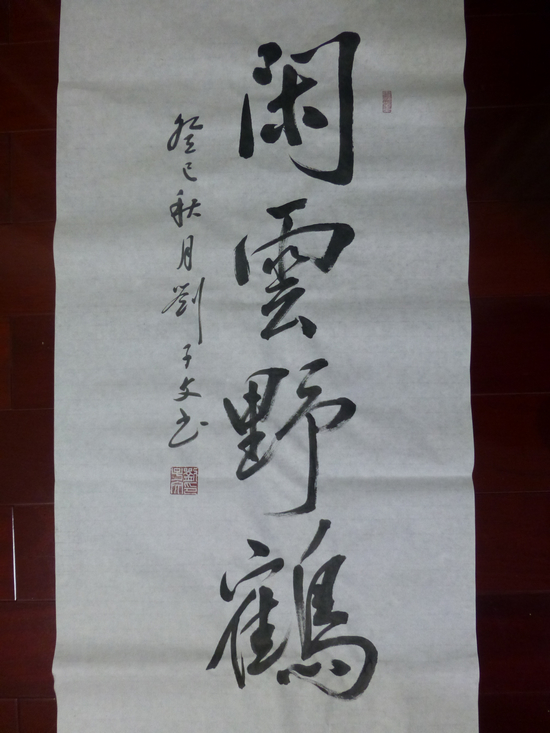 閑雲野鶴
癸巳秋月劉子文书